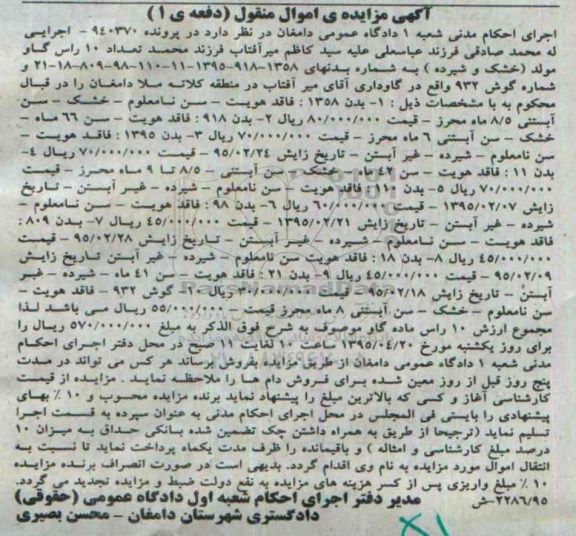 آگهی مزایده ی اموال منقول (دفعه ی ۱)
اجرای احکام مدنی شعبه ۱ دادگاه عمومی دامغان در نظر دارد در پرونده ۹۴۰۳۷۰ - اجرایی
له محمد صادقی فرزند عباسعلی علیه سید کاظم میرآفتاب فرزند محمد تعداد ۱۰ راس گاو
مولد (خشک و شیرده) به شماره بدنهای ۱۳۵۸-۹۱۸-۱۳۹۵-۱۱-۱۱۰-۹۸-۸۰۹-۱۸-۲۱ و
شماره گوش ۹۳۲ واقع در گاوداری آقای میر آفتاب در منطقه کلاته ملا دامغان را در قبال
محکوم به با مشخصات ذیل : ۱- بدن ۱۳۵۸ : فاقد هویت - سن نامعلوم - خشک - سن
آبستنی ۸/۵ ماه محرز - قیمت ۸۰/۰۰۰/۰۰۰ ریال ۲- بدن ۹۱۸ : فاقد هویت - سن ۶۶ ماه -
خشک - سن آبستنی ۶ ماه محرز - قیمت ۷۰/۰۰۰/۰۰۰ ریال ۳- بدن ۱۳۹۵ : فاقد هویت -
سن نامعلوم - شیرده - غیر آبستن - تاریخ زایش ۹۵/۰۲/۲۴ - قیمت ۷۰/۰۰۰/۰۰۰ ریال ۴-
بدن ۱۱ : فاقد هویت - سن ۴۲ ماه - خشک - سن آبستنی - ۸/۵ تا ۹ ماه محرز - قیمت
۷۰/۰۰۰/۰۰۰ ریال ۵- بدن ۱۱۰ : فاقد هویت - سن نامعلوم - شیرده - غیر آبستن - تاریخ
زایش ۱۳۹۵/۰۲/۰۷ - قیمت ۶۰/۰۰۰/۰۰۰ ریال ۶- بدن ۹۸ : فاقد هویت - سن نامعلوم -
شیرده - غیر آبستن - تاریخ زایش ۱۳۹۵/۰۲/۲۱ - قیمت ۴۵/۰۰۰/۰۰۰ ریال ۷- بدن ۸۰۹ :
فاقد هویت - سن نامعلوم - شیرده - غیر آبستن - تاریخ زایش ۹۵/۰۲/۲۸ - قیمت
۴۵/۰۰۰/۰۰۰ ریال ۸- بدن ۱۸ : فاقد هویت سن نامعلوم - شیرده - غیر آبستن تاریخ زایش
۹۵/۰۲/۰۹ - قیمت ۴۵/۰۰۰/۰۰۰ ریال ۹- بدن ۲۱ : فاقد هویت - سن ۴۱ ماه - شیرده - غیر
آبستن - تاریخ زایش ۹۵/۰۲/۱۸ - قیمت ۳۰/۰۰۰/۰۰۰ ریال ۱۰- گوش ۹۳۲ - فاقد هویت -
سن نامعلوم - خشک - سن آبستنی ۸ ماه محرز قیمت - ۵۵/۰۰۰/۰۰۰ ریال می باشد لذا
مجموع ارزش ۱۰ راس ماده گاو موصوف به شرح فوق الذکر به مبلغ ۵۷۰/۰۰۰/۰۰۰ ریال را
برای روز یکشنبه مورخ ۱۳۹۵/۰۴/۲۰ ساعت ۱۰ لغایت ۱۱ صبح در محل دفتر اجرای احکام
مدنی شعبه ۱ دادگاه عمومی دامغان از طریق مزایده بفروش برساند هر کس می تواند در مدت
پنج روز قبل از روز معین شده برای فروش دام ها را ملاحظه نماید . مزایده از قیمت
کارشناسی آغاز و کسی که بالاترین مبلغ را پیشنهاد نماید برنده مزایده محسوب و ۱۰ ٪ بهای
پیشنهادی را بایستی فی المجلس در محل اجرای احکام مدنی به عنوان سپرده به قسمت اجرا
تسلیم نماید (ترجیحا از طریق به همراه داشتن چک تضمین شده بانکی حداق به میزان ۱۰
درصد مبلغ کارشناسی و امثاله ) و باقیمانده را ظرف مدت یکماه پرداخت نماید تا نسبت به
انتقال اموال مورد مزایده به نام وی اقدام گردد. بدیهی است در صورت انصراف برنده مزایده
۱۰ ٪ مبلغ واریزی پس از کسر هزینه های مزایده به نفع دولت ضبط و مزایده تجدید می گردد.
۲۲۸۶/۹۵-ش مدیر دفتر اجرای احکام شعبه اول دادگاه عمومی (حقوقی)
دادگستری شهرستان دامغان - محسن بصیری